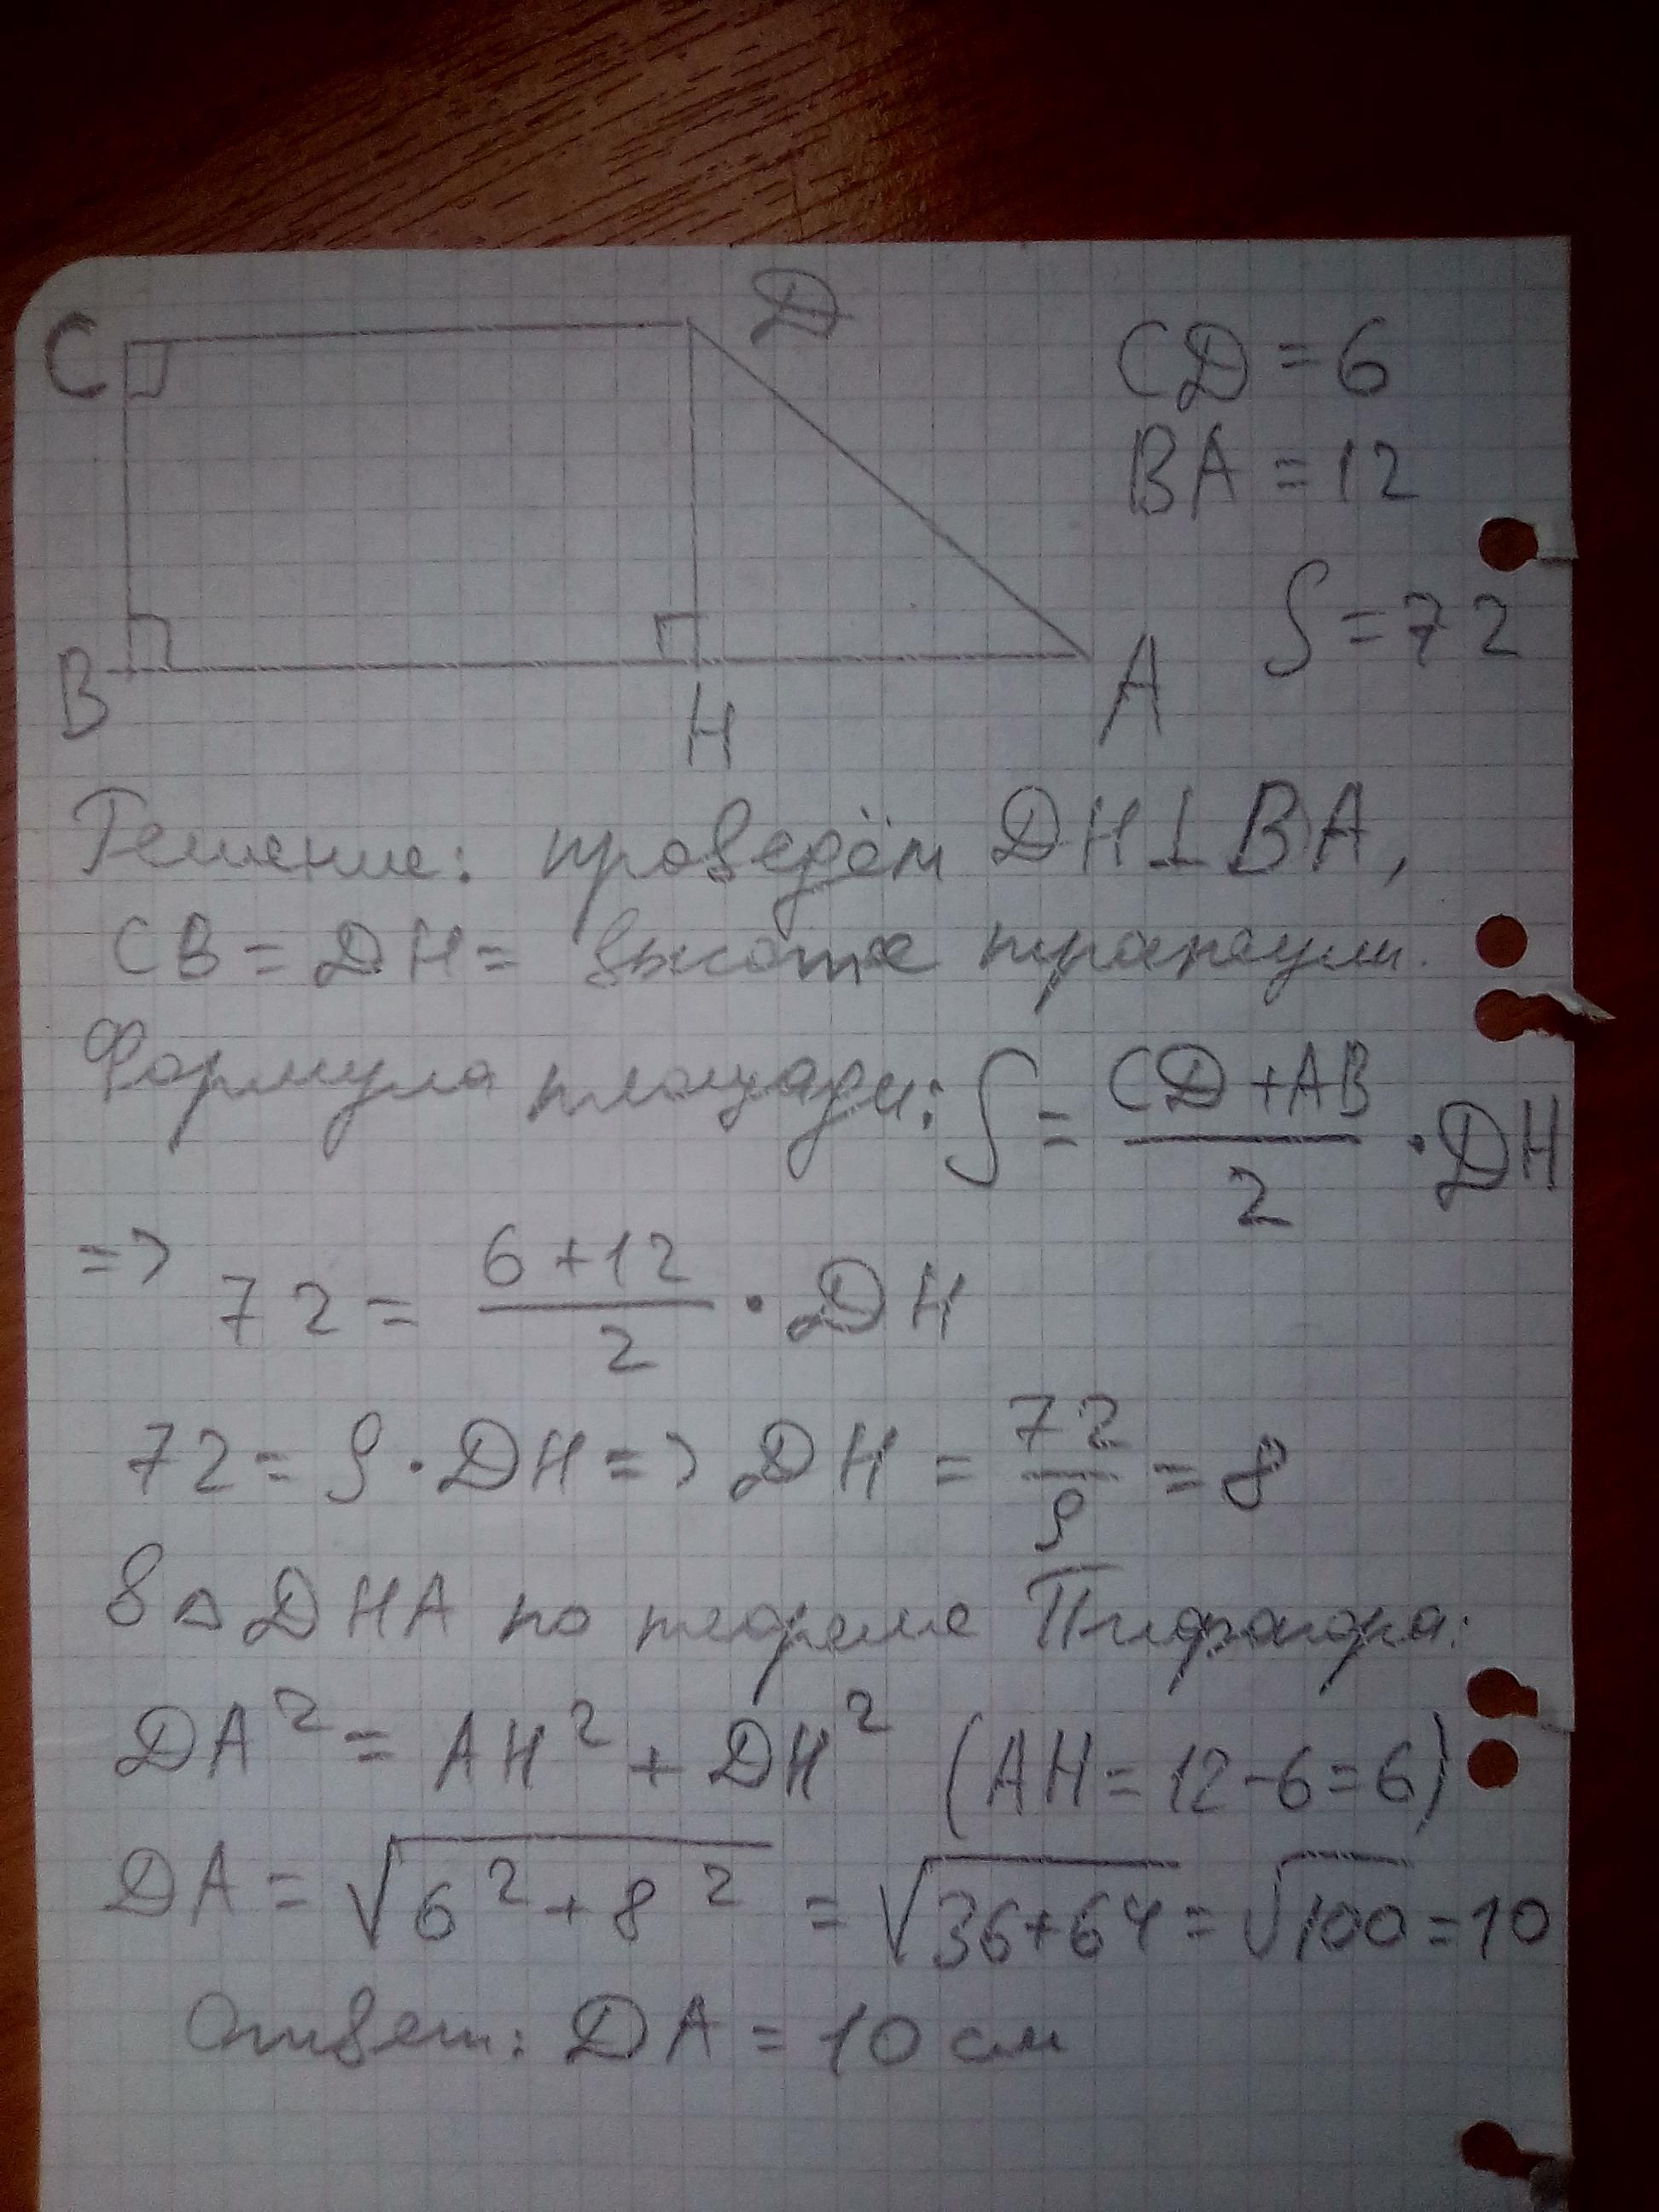 C
D
CD = 6
BA = 12
S = 72
B
H
A
Решение: проведём DH ⊥ BA,
CB = DH = высоте трапеции.
Формула площади: S = (CD + AB)/2 · DH
=> 72 = (6 + 12)/2 · DH
72 = 9 · DH => DH = 72/9 = 8
В △ DHA по теореме Пифагора:
DA² = AH² + DH² (AH = 12 - 6 = 6)
DA = √(6² + 8²) = √(36 + 64) = √100 = 10
Ответ: DA = 10 см